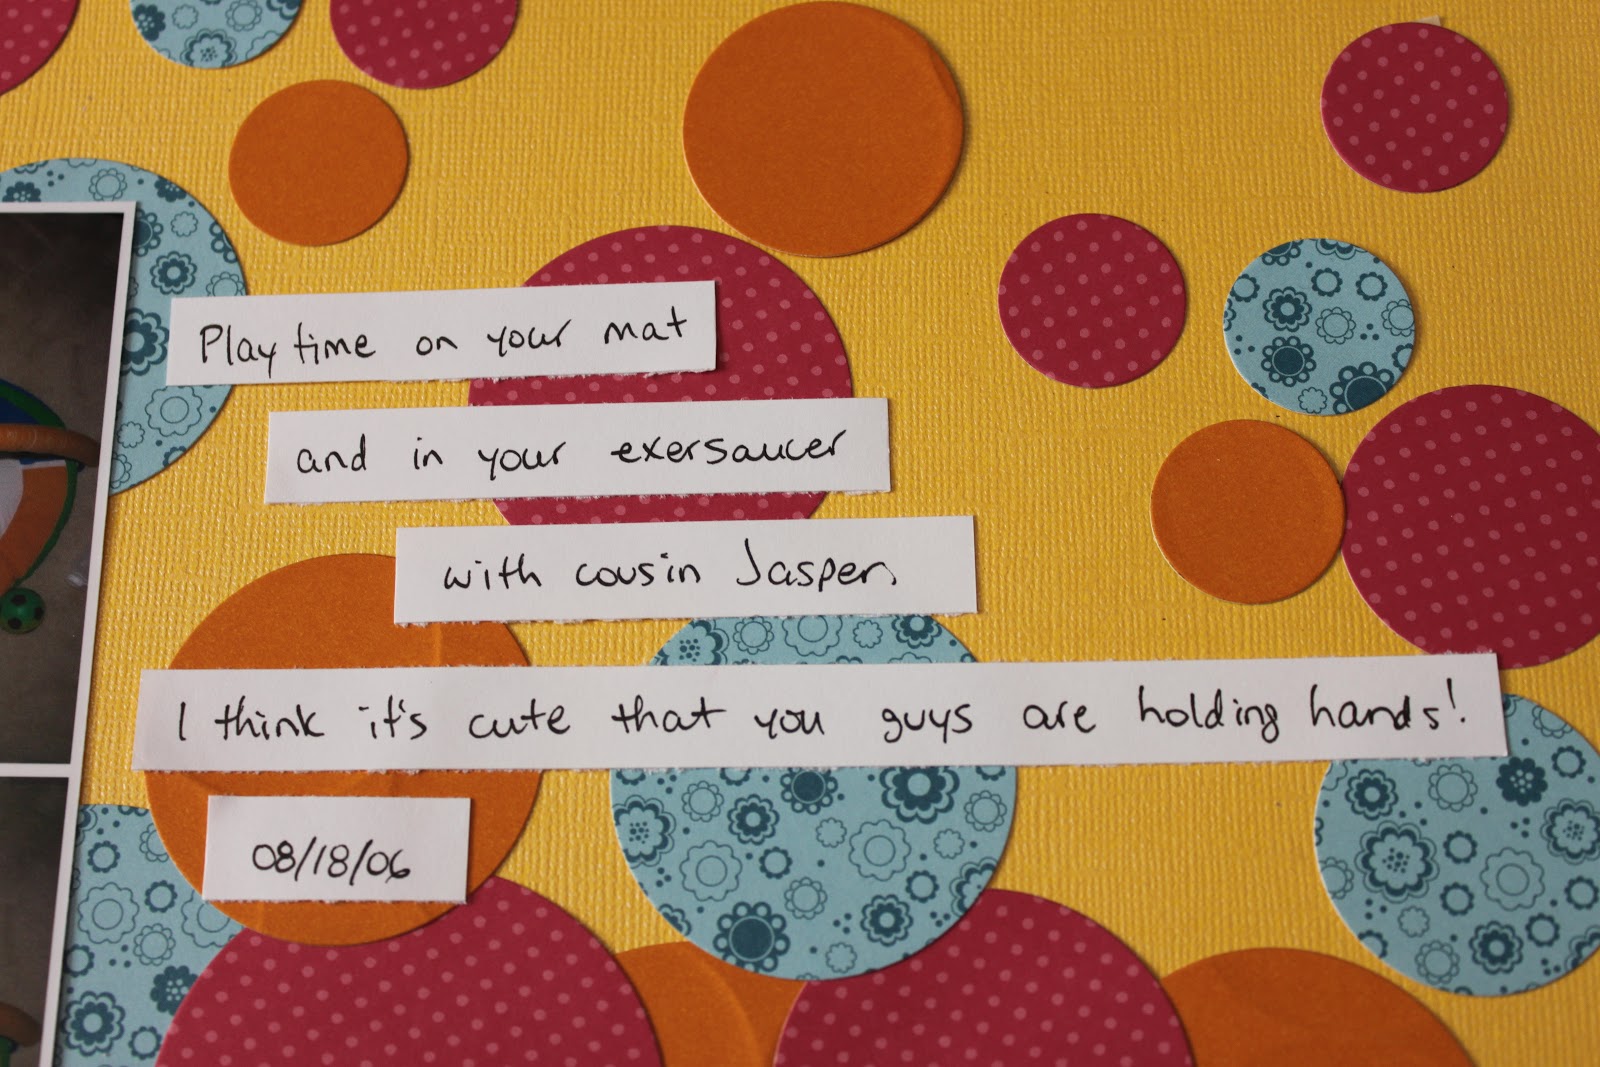 Playtime on your mat
and in your exersaucer
with cousin Jasper.
I think it's cute that you guys are holding hands!
08/18/06